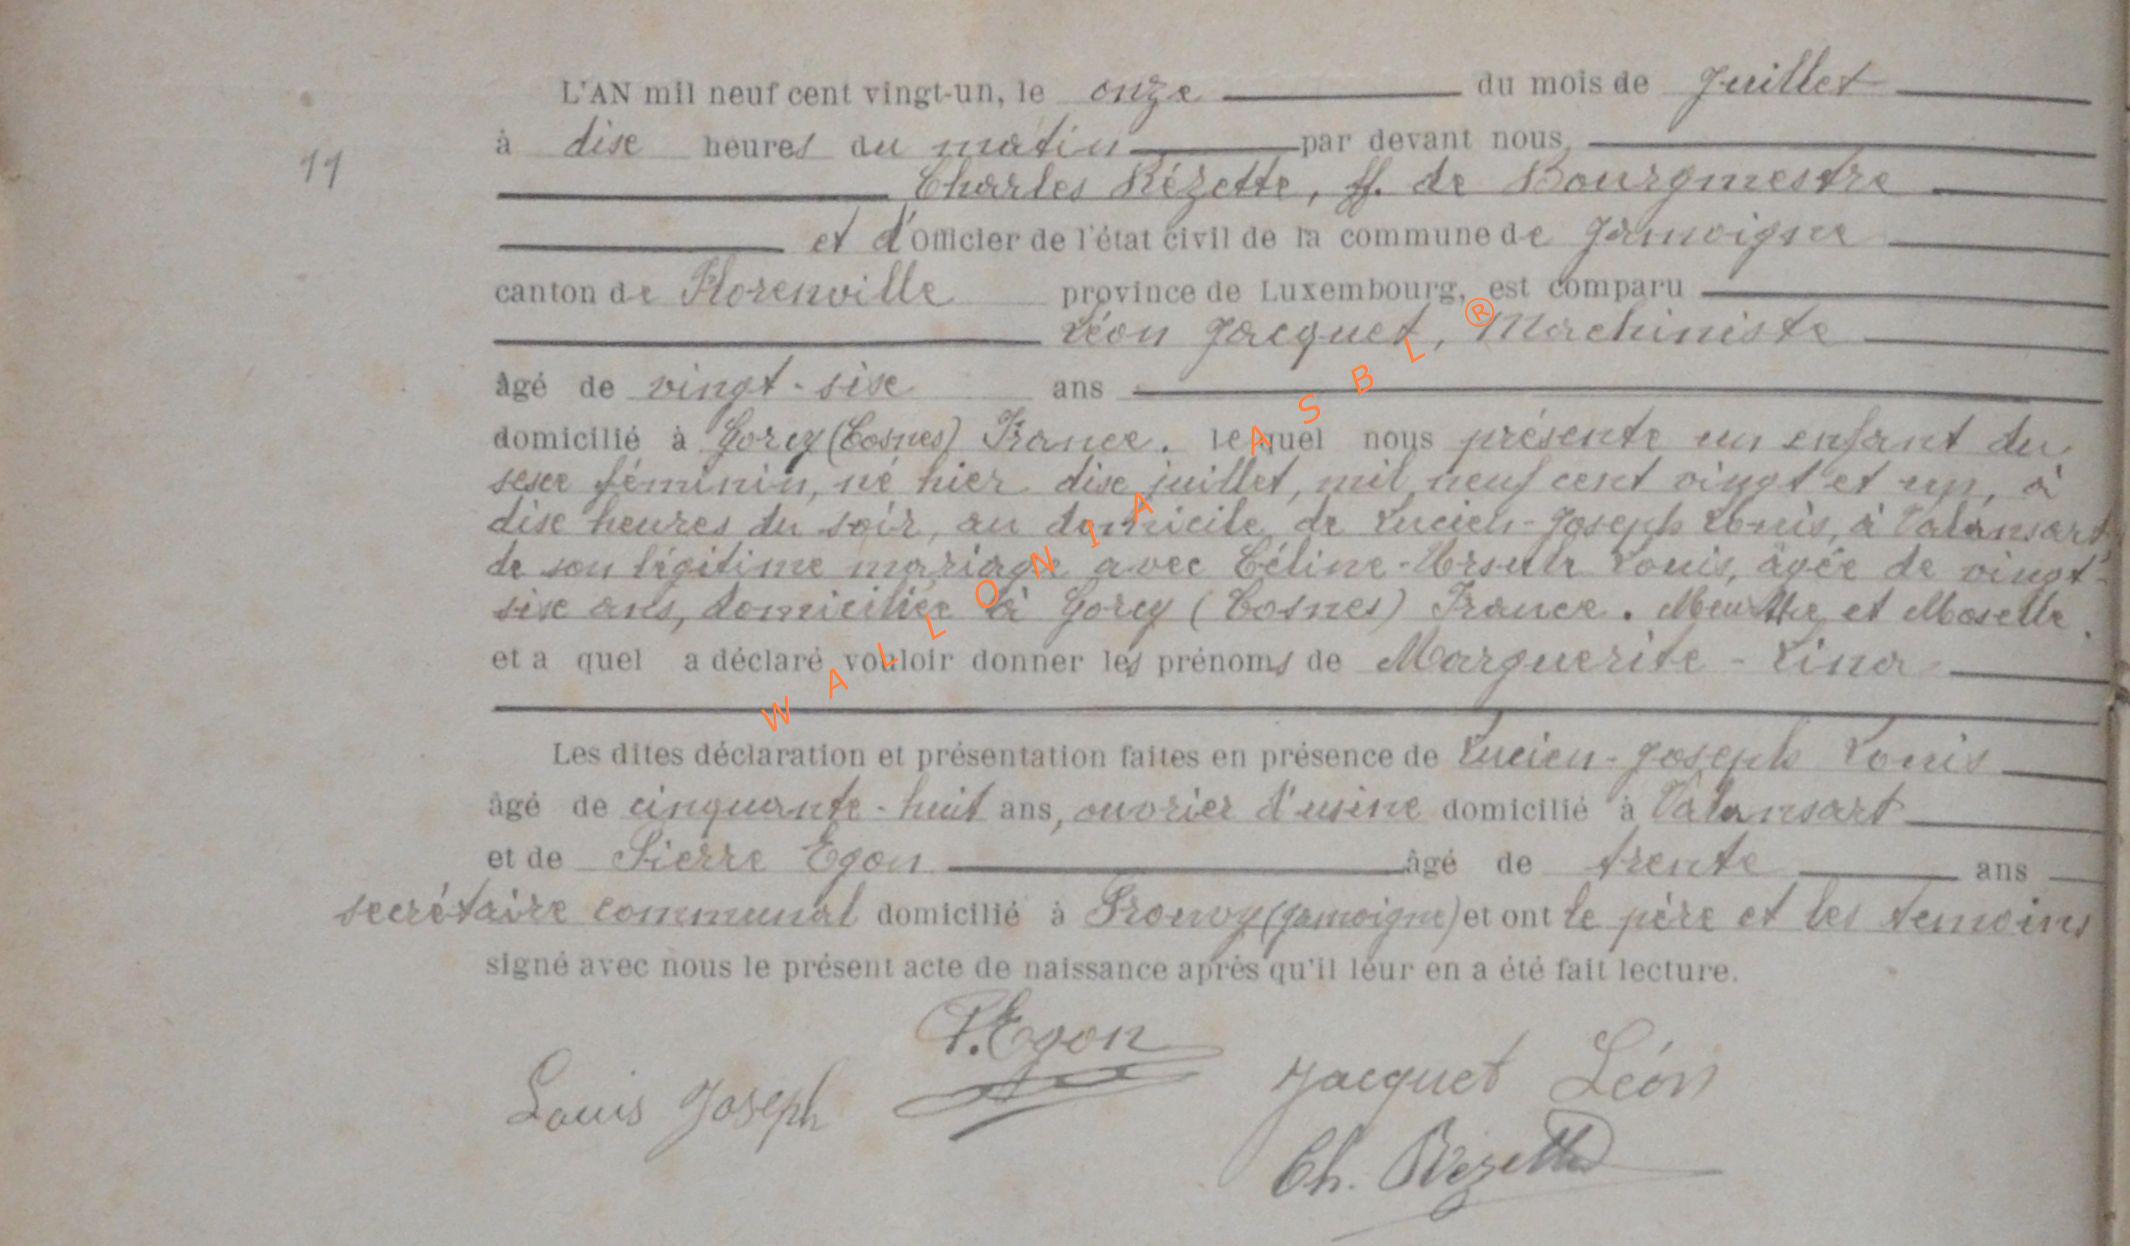 L'AN mil neuf cent vingt-un, le onze du mois de Juillet
11
à dise heures du matin par devant nous,
Charles Rézette, ff. de Bourgmestre
et d'Officier de l'état civil de la commune de Jamoigne
canton de Florenville province de Luxembourg, est comparu
Léon Jacquet, Machiniste
âgé de vingt-sise ans
domicilié à Gorcy (Cosnes) France. lequel nous présente un enfant du
sexe féminin, né hier dise juillet, mil neuf cent vingt et un, à
dise heures du soir, au domicile de Lucien-Joseph Louis, à Valansart,
de son légitime mariage avec Céline-Ursule Louis, âgée de vingt-
sise ans, domiciliée à Gorcy (Cosnes) France. Meurthe et Moselle.
et a quel a déclaré vouloir donner les prénoms de Marguerite-Lina
Les dites déclaration et présentation faites en présence de Lucien-Joseph Louis
âgé de cinquante-huit ans, ouvrier d'usine domicilié à Valansart
et de Pierre Egon âgé de trente ans
secrétaire communal domicilié à Prouvy (Jamoigne) et ont le père et les temoins
signé avec nous le présent acte de naissance après qu'il leur en a été fait lecture.
P. Egon
Louis Joseph Jacquet Léon
Ch. Rézette
WALLONIA ASBL ®